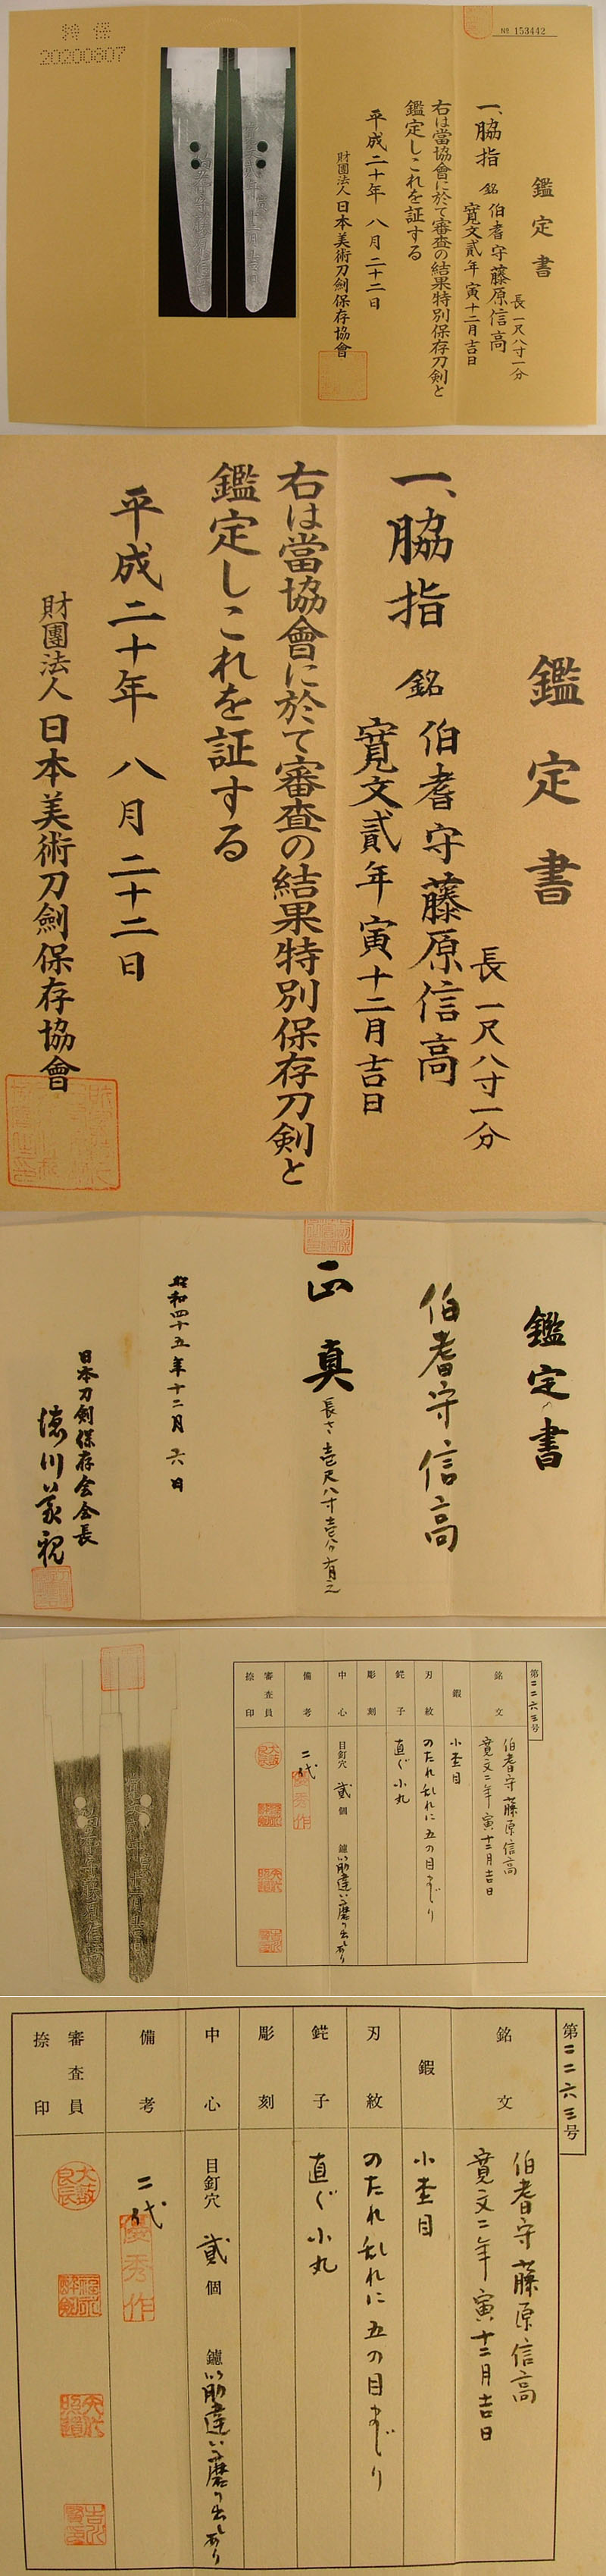 特保
20200807
№ 153442
鑑定書
長一尺八寸一分
一、脇指 銘 伯耆守藤原信高
寛文貳年寅十二月吉日
右は當協會に於て審査の結果特別保存刀剣と
鑑定しこれを証する
平成二十年 八月二十二日
財團法人 日本美術刀劍保存協會
鑑定書
長一尺八寸一分
一、脇指 銘 伯耆守藤原信高
寛文貳年寅十二月吉日
右は當協會に於て審査の結果特別保存刀剣と
鑑定しこれを証する
平成二十年 八月二十二日
財團法人 日本美術刀劍保存協會
鑑定書
伯耆守信高
正真
長さ壱尺八寸壱分有之
昭和四十五年十二月六日
日本刀剣保存会会長
徳川義親
第二二六三号
銘文
伯耆守藤原信高
寛文二年寅十二月吉日
鍜
小杢目
刃紋
のたれ乱れに五の目まじり
鋩子
直ぐ小丸
彫刻
中心
目釘穴 貳個 鑢 筋違い磨り出しあり
備考
二代
優秀作
審査員
捺印
第二二六三号
銘文
伯耆守藤原信高
寛文二年寅十二月吉日
鍜
小杢目
刃紋
のたれ乱れに五の目まじり
鋩子
直ぐ小丸
彫刻
中心
目釘穴 貳個 鑢 筋違い磨り出しあり
備考
二代
優秀作
審査員
捺印